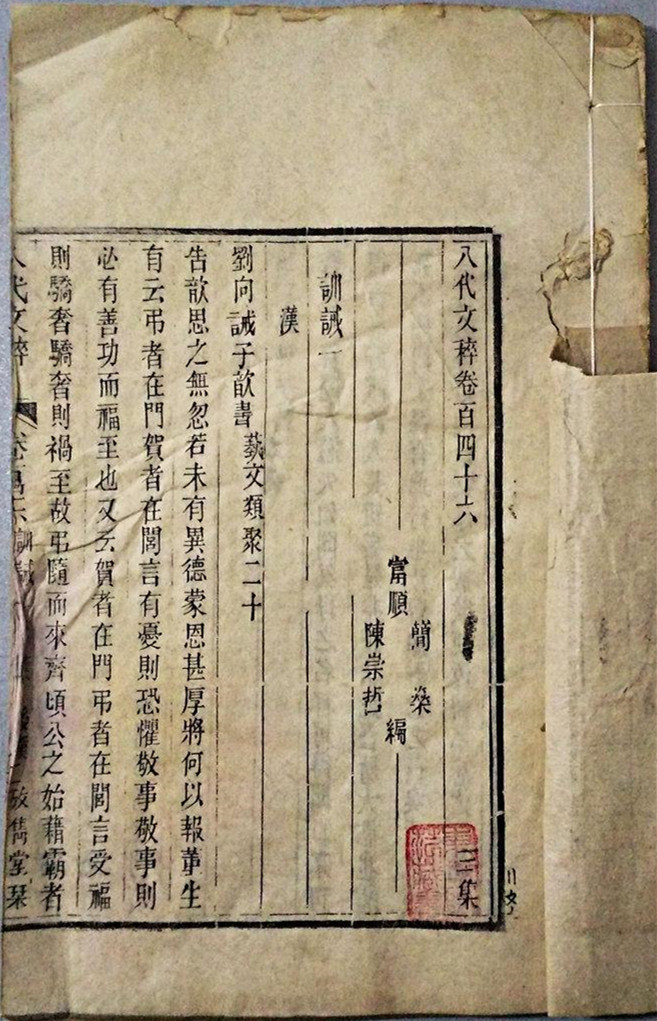 八代文稡卷百四十六 三集
富順 簡燊 陳崇哲 編
訓誡一
漢
劉向誡子歆書 蓺文類聚二十
告歆思之無忽若未有異德蒙恩甚厚將何以報董生
有云弔者在門賀者在閭言有憂則恐懼敬事敬事則
必有善功而福至也又云賀者在門弔者在閭言受福
則驕奢驕奢則禍至故弔隨而來齊頃公之始藉霸者
八代文稡 卷百 訓誡 敄雋堂栞